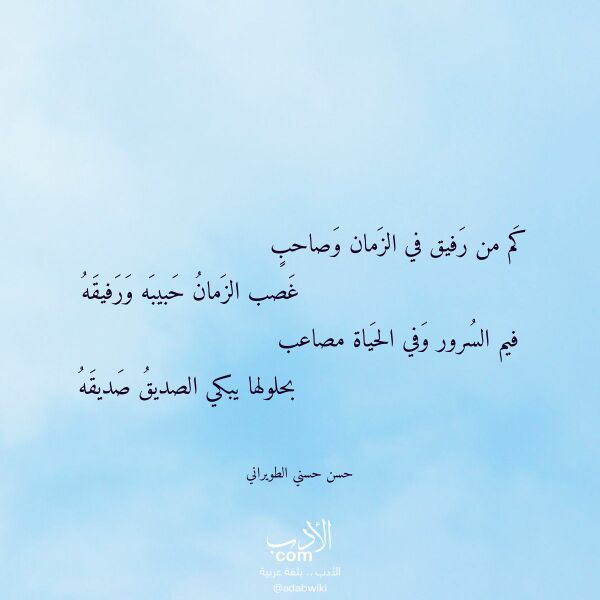 كَم من رَفيق في الزَمان وَصاحبٍ
غَصب الزَمانُ حَبيبَه وَرَفيقَهُ
فيم السُرور وَفي الحَياة مصاعب
بحلولها يبكي الصديقُ صَديقَهُ
حسن حسني الطويراني
الأدب
com
الأدب .. بلغة عربية
@adabwiki